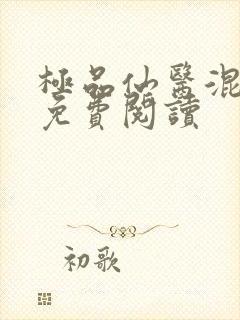 極品仙醫混
免費閱讀
初歌